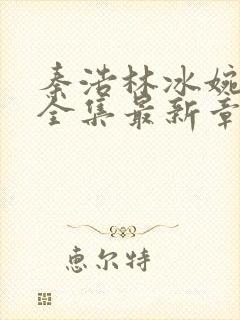 秦浩林冰婉
全集最新章
惠尔特